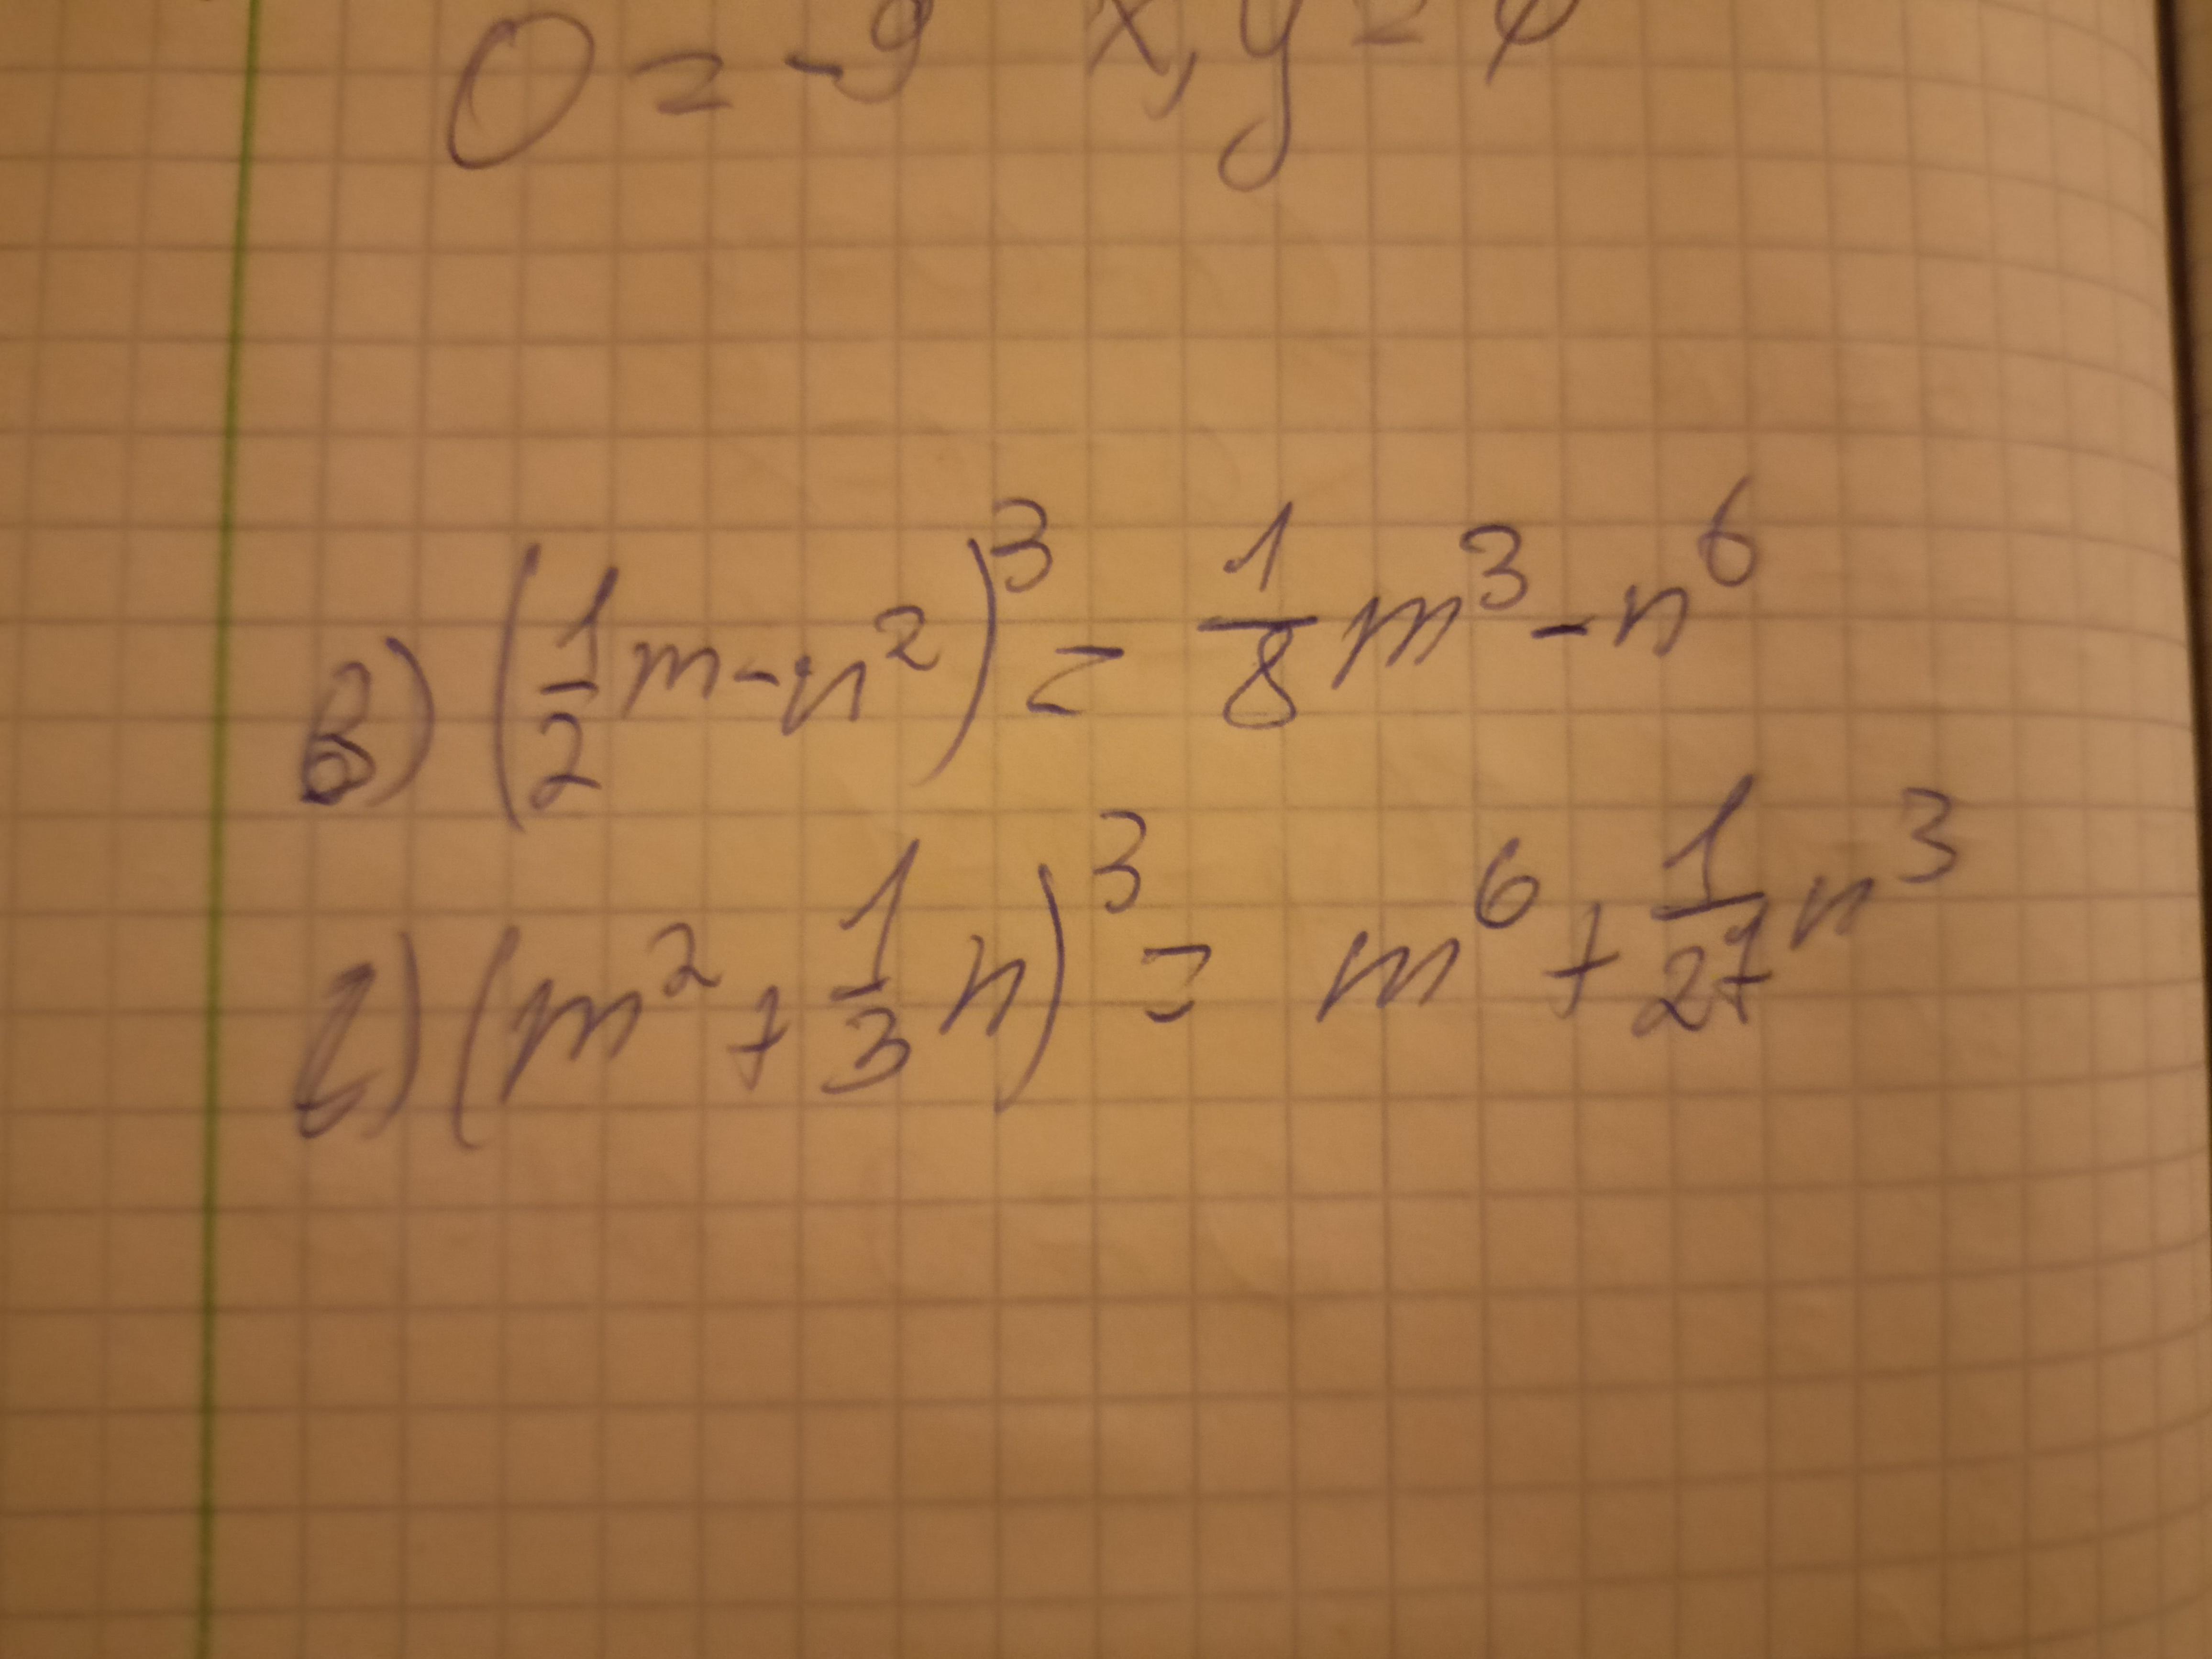 0 = -9 x, y = φ
в) (1/2 m - n²)³ = 1/8 m³ - n⁶
г) (m² + 1/3 n)³ = m⁶ + 1/27 n³